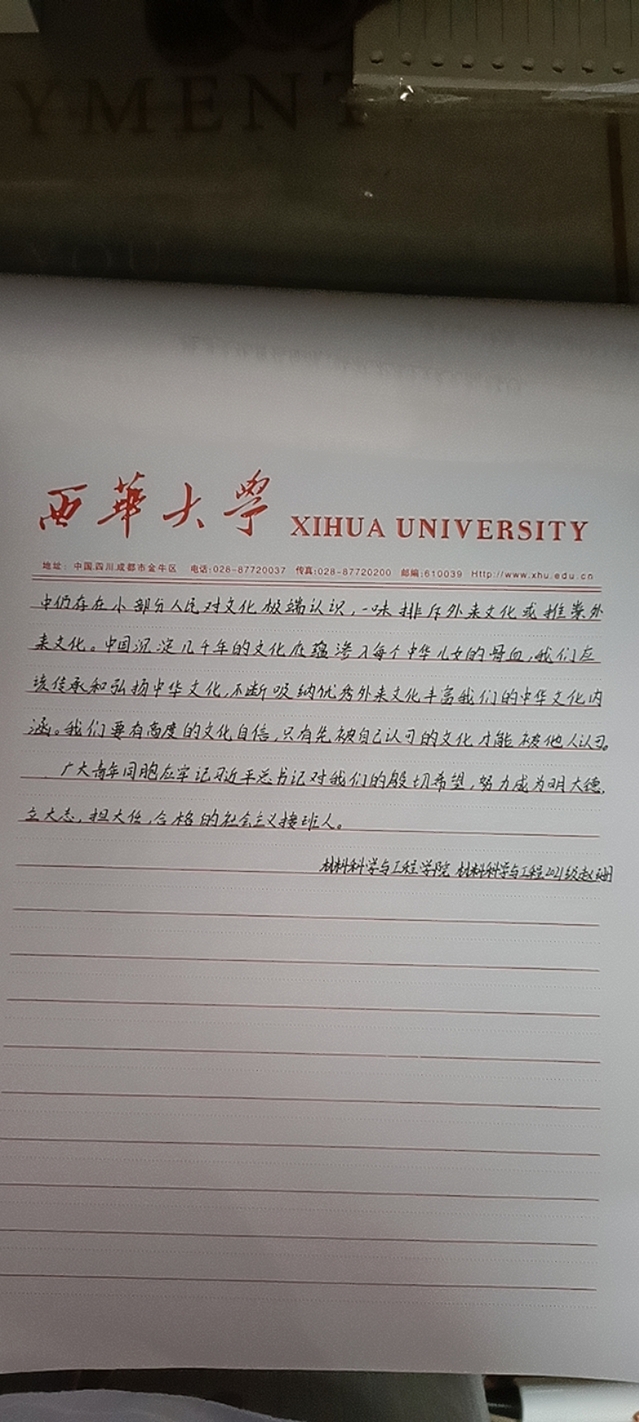 YMENT
西華大学 XIHUA UNIVERSITY
地址：中国四川成都市金牛区 电话:028-87720037 传真:028-87720200 邮编:610039 Http://www.xhu.edu.cn
中仍存在小部分人民对文化极端认识，一味排斥外来文化或推崇外
来文化。中国沉淀几千年的文化底蕴渗入每个中华儿女的骨血，我们应
该传承和弘扬中华文化，不断吸纳优秀外来文化丰富我们的中华文化内
涵。我们要有高度的文化自信，只有先被自己认可的文化才能被他人认可。
广大青年同胞应牢记习近平总书记对我们的殷切希望，努力成为明大德，
立大志，担大任，合格的社会主义接班人。
材料科学与工程学院 材料科学与工程2021级赵